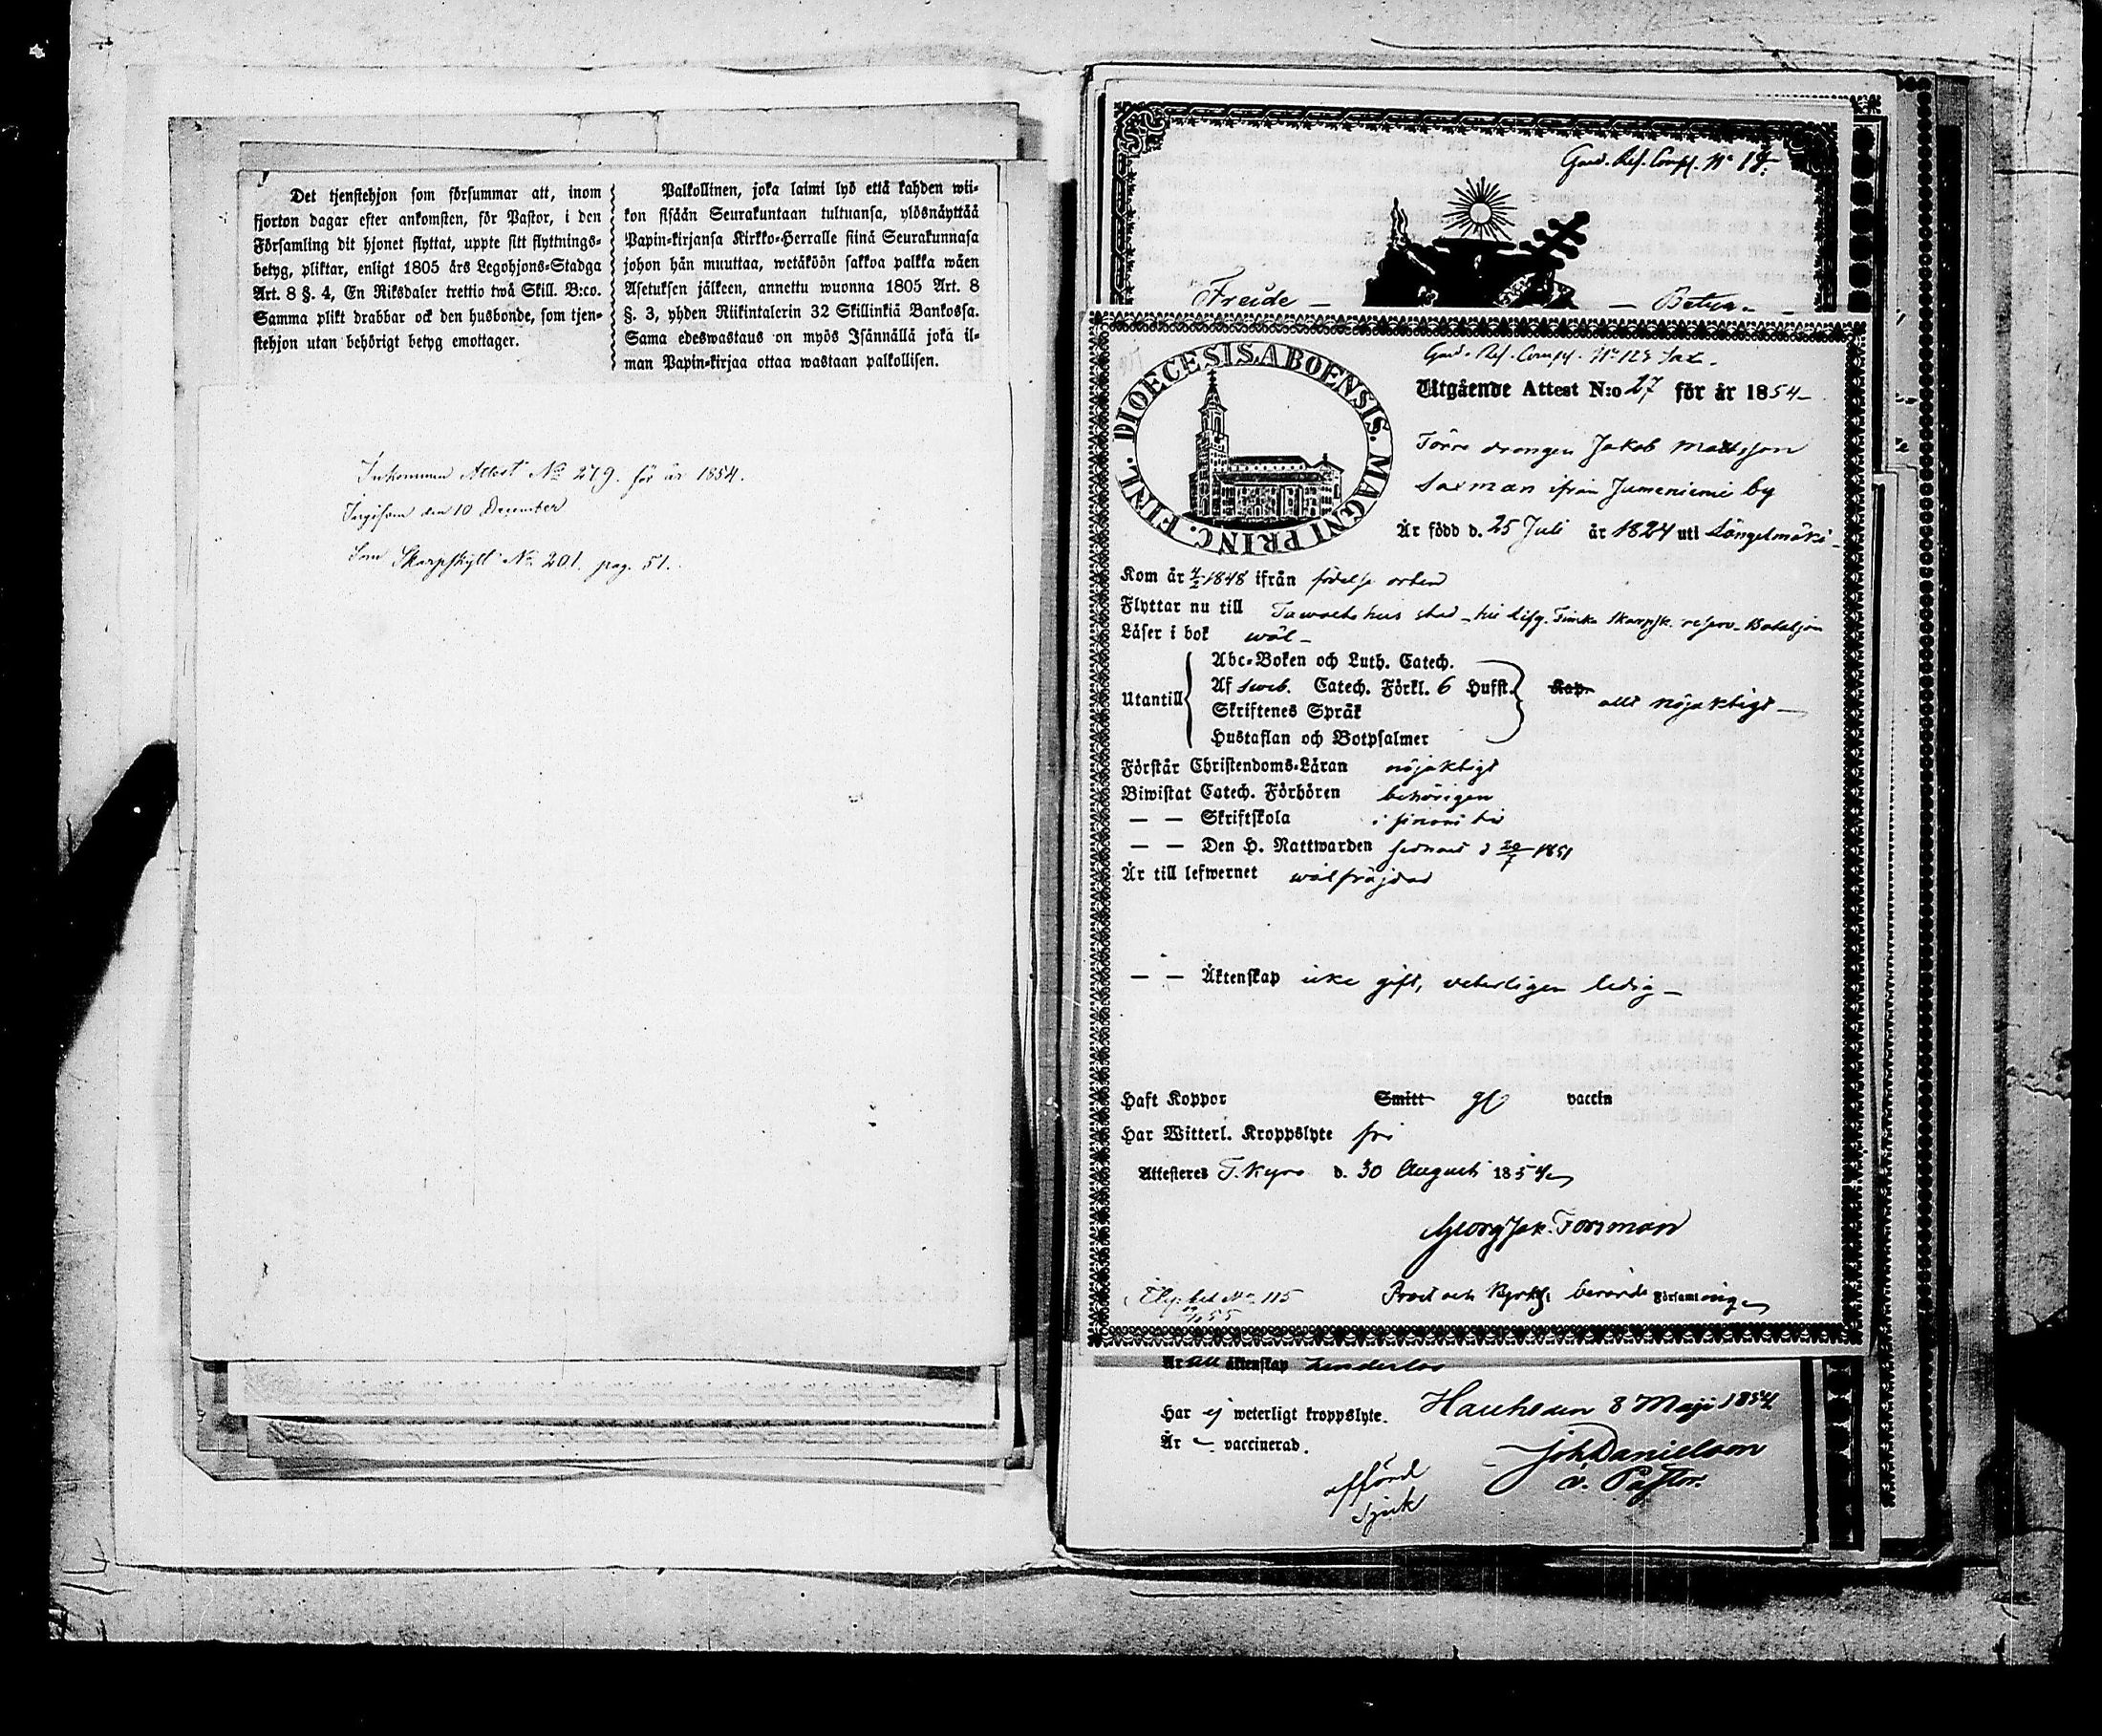 Det tjenstehjon som försummar att, inom
fjorton dagar efter ankomsten, för Pastor, i den
Församling dit hjonet flyttat, uppte sitt flyttnings-
betyg, pliktar, enligt 1805 års Legohjons-Stadga
Art. 8 §. 4, En Riksdaler trettio twå Skill. B:co.
Samma plikt drabbar ock den husbonde, som tjen-
stehjon utan behörigt betyg emottager.
Palkollinen, joka laimi lyö että kahden wii-
kon sisään Seurakuntaan tultuansa, ylösnäyttää
Papin-kirjansa Kirkko-Herralle siinä Seurakunnasa
johon hän muuttaa, wetäköön sakkoa palkka wäen
Asetuksen jälkeen, annettu wuonna 1805 Art. 8
§. 3, yhden Riikintalerin 32 Skillinkiä Bankossa.
Sama edeswastaus on myös Isännällä joka il-
man Papin-kirjaa ottaa wastaan palkollisen.
Inkommen Attest No 279. för år 1854.
den 10 December
Som Skarpskytt No 201. pag. 51.
Gard. Res. Comp. No
Freide — — Betyg
Gard. Res. Comp. No 123
DIOECESIS ABOENSIS. MAGNI PRINC. FINL.
Utgående Attest N:o 27 för år 1854
drengen Jakob Mattsson
Saxman ifrån Jumeniemi by
Är född d. 25 Juli år 1824 uti Längelmäki
Kom år 1848 ifrån födelse orten
Flyttar nu till Tawastehus stad Finska Skarpsk. reserv Bataljon
Läser i bok wäl
Utantill
Abc-Boken och Luth. Catech.
Af Sweb. Catech. Förkl. 6 Hufst.
Skriftenes Språk
Hustaflan och Botpsalmer
Kap. allt nöjaktigt
Förstår Christendoms-Läran nöjaktigt
Biwistat Catech. Förhören behörigen
— — Skriftskola i sinom tid
— — Den H. Nattwarden sednast d 20/7 1851
Är till lefwernet wälfräjdad
— — Äktenskap icke gift, veterligen ledig
Haft Koppor Smitt vaccin
Har Witterl. Kroppslyte fri
Attesteres T. Kyro d. 30 Augusti 1854
Georg Jak. Forsman
No 115
Prost och Kyrkh. berörde Församling
Är till äktenskap hinderlös
Har ej weterligt kroppslyte.
Är vaccinerad.
Hauho den 8 Maji 1854
Joh Danielson
v. Pastor.
afförd
Sjuk